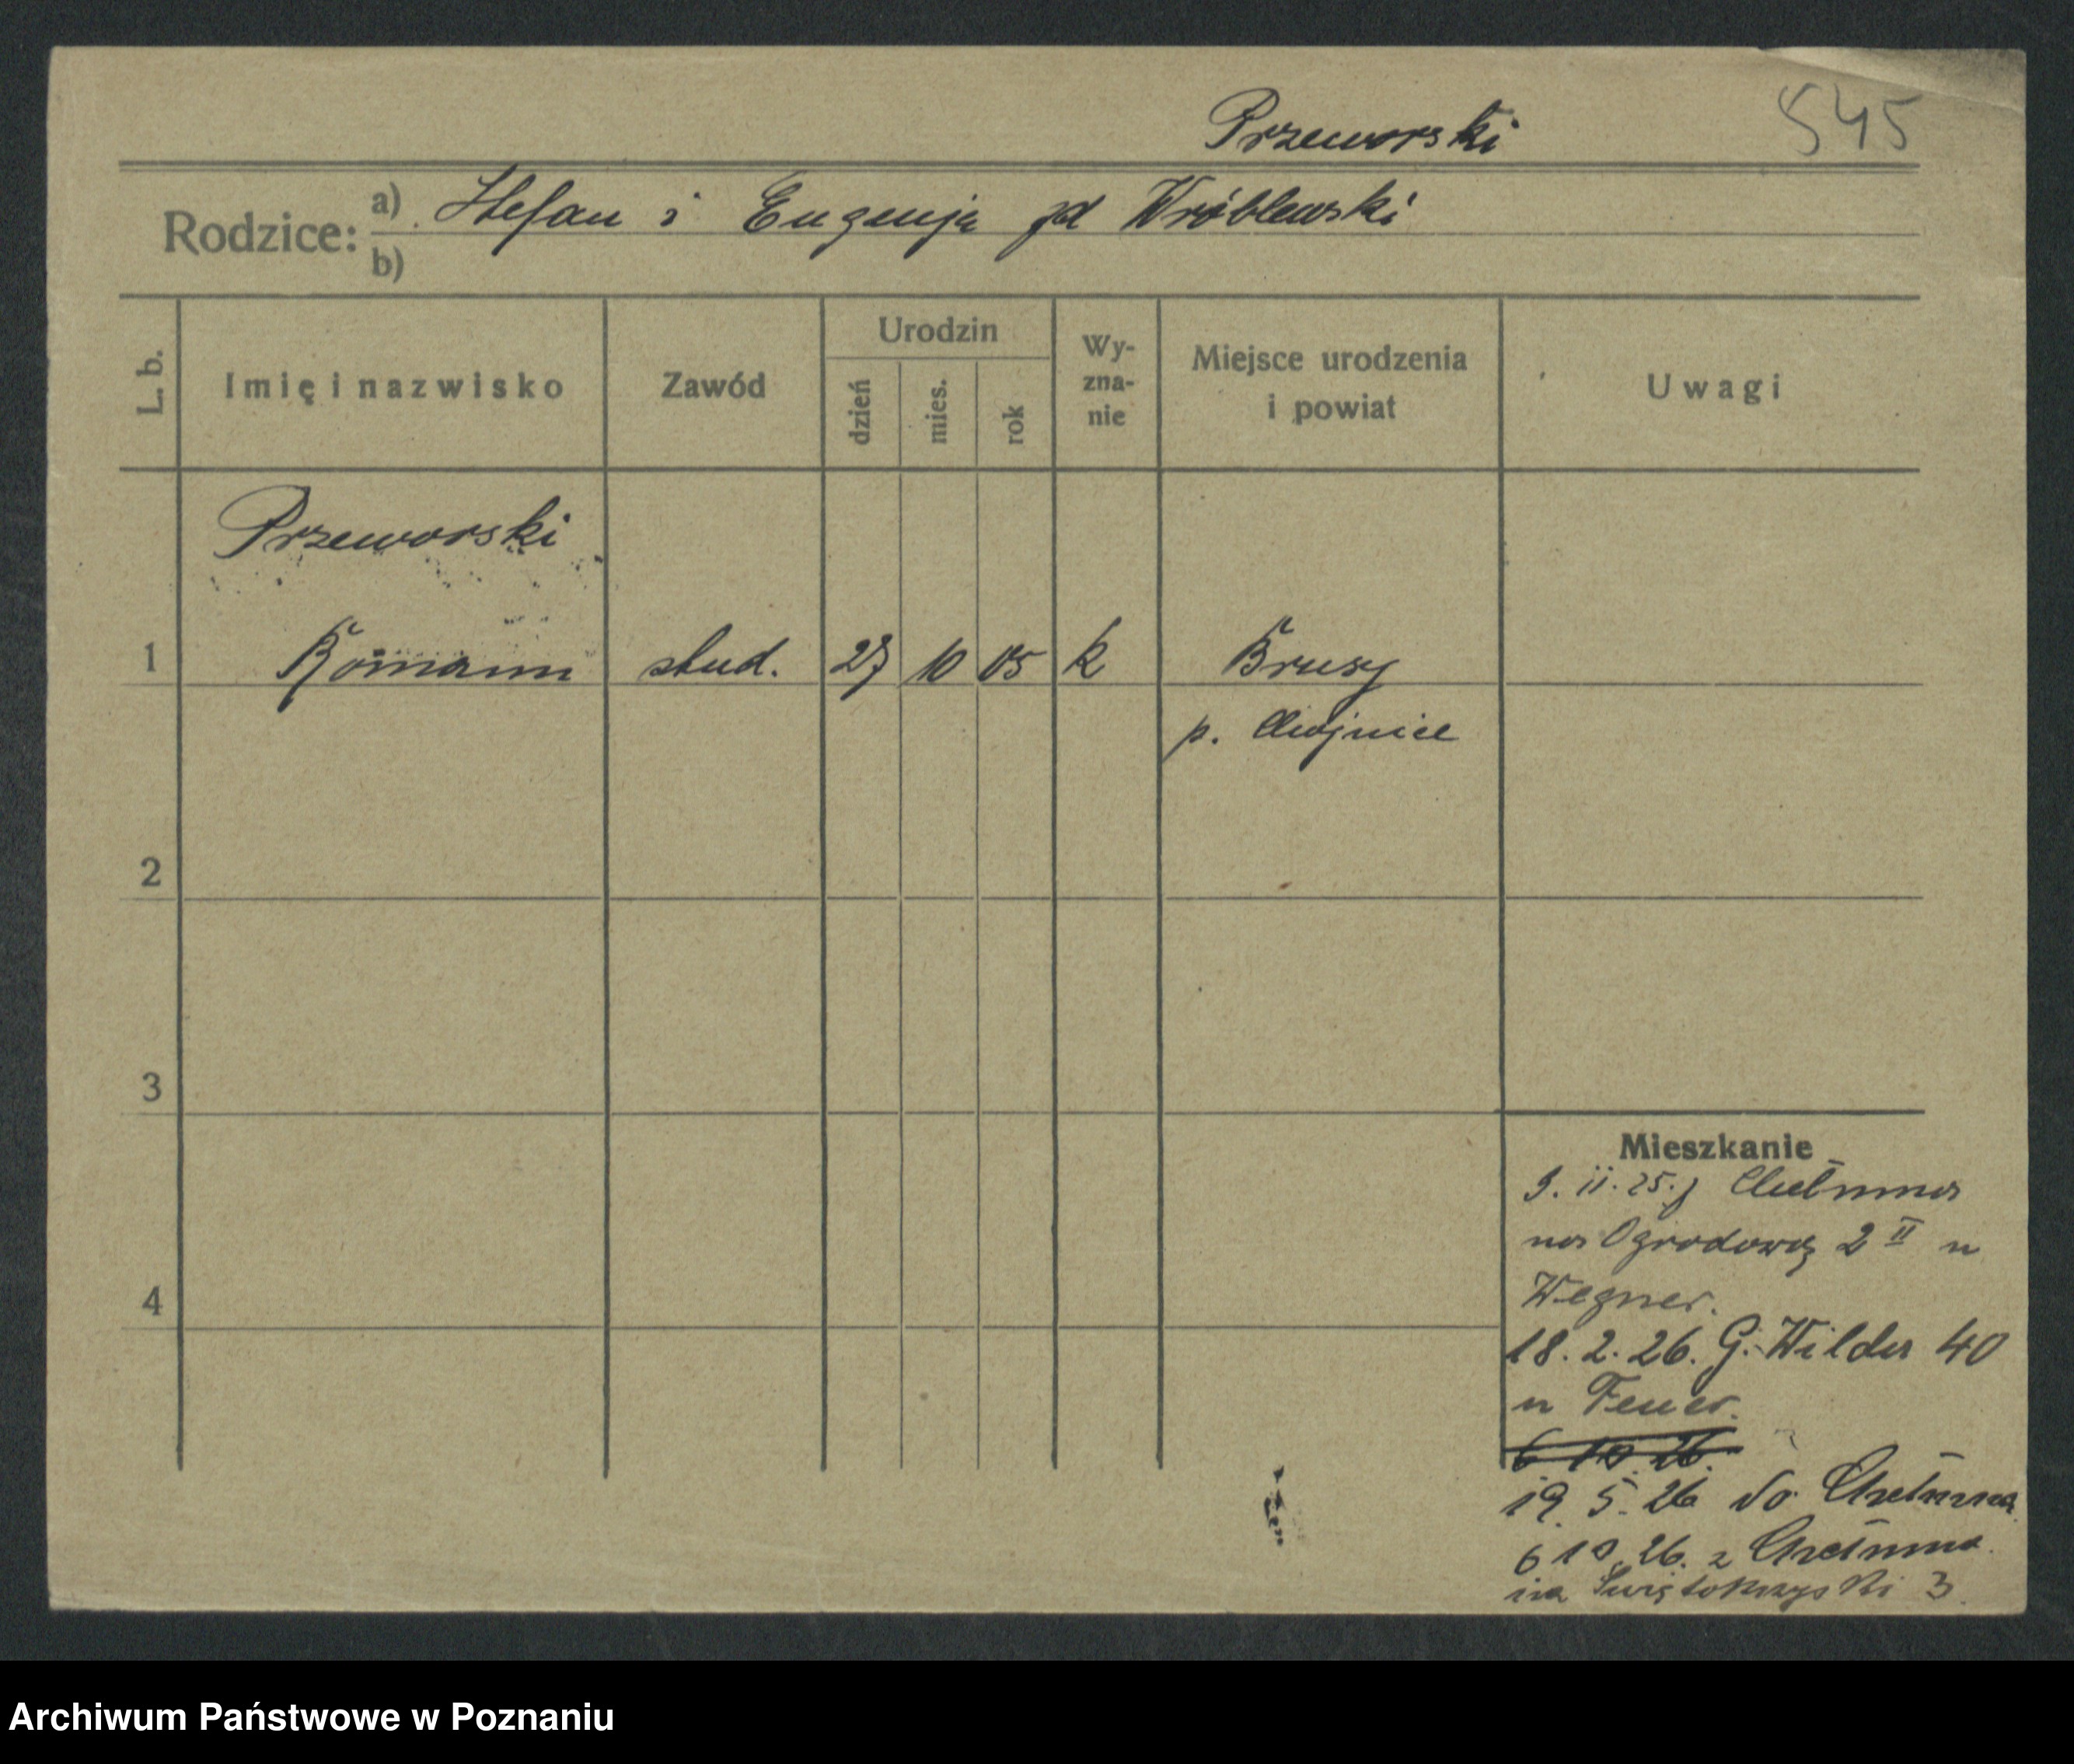 Przeworski 545
Rodzice: a) Stefan i Eugenja zd Wróblewski
b)
L. b. Imię i nazwisko Zawód Urodzin dzień mies. rok Wy-zna-nie Miejsce urodzenia i powiat Uwagi
Przeworski
1 Romann stud. 27 10 05 k Brusy
p. Chojnice
2
3
4
Mieszkanie
9. 11. 25. z Chełmna
na Ogrodową 2 II u
Wegner.
18. 2. 26. G. Wilda 40
u Feuer.
6 10. 26.
19. 5. 26 do Chełmna
6 10. 26. z Chełmna
na Świętokrzyski 3
Archiwum Państwowe w Poznaniu